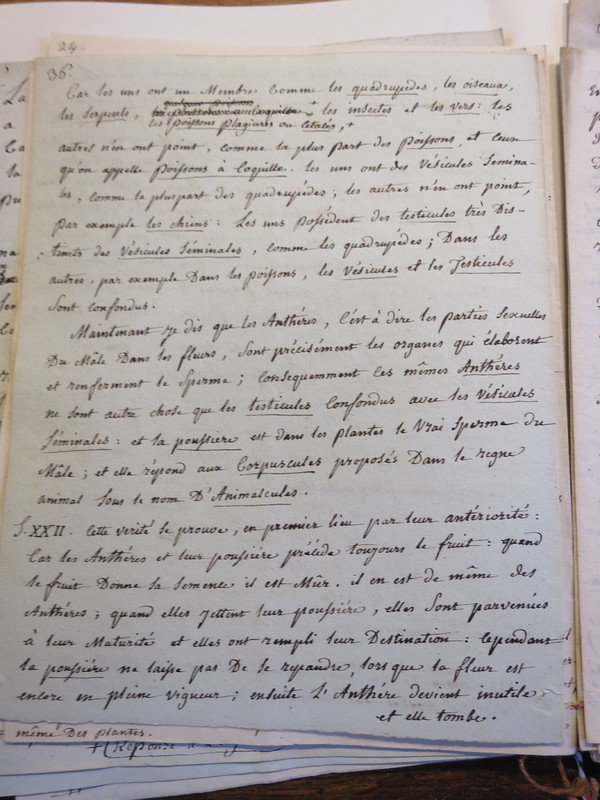 24
36.
Car les uns ont un Membre comme les quadrupédes, les oiseaux,
les Serpents, les insectes et les vers: les
les poissons plagiures ou Cétacés, +
autres n'en ont point, comme la plus part des poissons et ceux
qu'on appelle poissons à Coquille. les uns ont des Vésicules Semina-
les, comme la pluspart des quadrupédes; les autres n'en ont point,
par exemple les chiens: Les uns possédent des testicules très Dis-
tincts des Vésicules Séminales, comme les quadrupédes; Dans les
autres, par exemple Dans les poissons, les Vésicules et les Testicules
Sont confondus.
Maintenant je dis que les Anthéres, c'est à dire les parties Sexuelles
Du Mâle Dans les fleurs, Sont précisément les organes qui élaborent
et renferment le Sperme; consequemment les mêmes Anthéres
ne sont autre chose que les testicules Confondus avec les Vésicules
Séminales: et la poussiere est dans les plantes le Vrai Sperme du
Mâle; et elle répond aux Corpuscules proposés Dans le regne
animal Sous le nom D'Animalcules.
§. XXII. Cette verité se prouve, en premier lieu par leur antériorité:
Car les Anthéres et leur poussiere précéde toujours le fruit: quand
le fruit Donne sa semence il est Mûr. il en est de même des
Anthéres; quand elles jettent leur poussiére, elles Sont parvenües
à leur Maturité et elles ont rempli leur Destination: Cependant
la poussiére ne laisse pas De se repandre, lors que la fleur est
encore en pleine vigueur; ensuite L'Anthére devient inutile
et elle tombe.
même Des plantes.